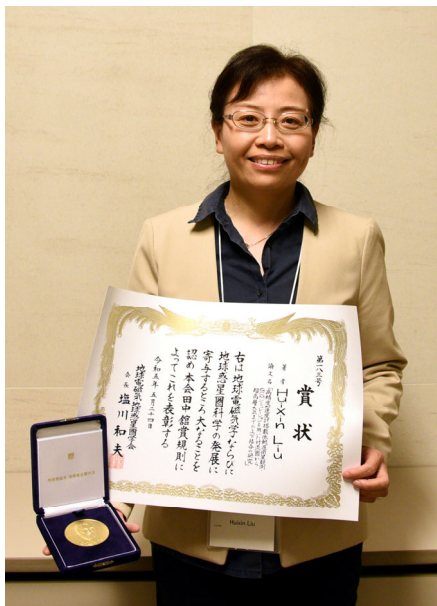 第一八三号
賞状
著者 Huixin Liu
論文名
右は地球電磁気学ならびに
地球惑星圏科学の発展に
寄与するところ大なることを
認め本会田中舘賞規則に
よってこれを表彰する
令和五年五月二十四日
地球電磁気・地球惑星圏学会
会長 塩川和夫
Huixin Liu